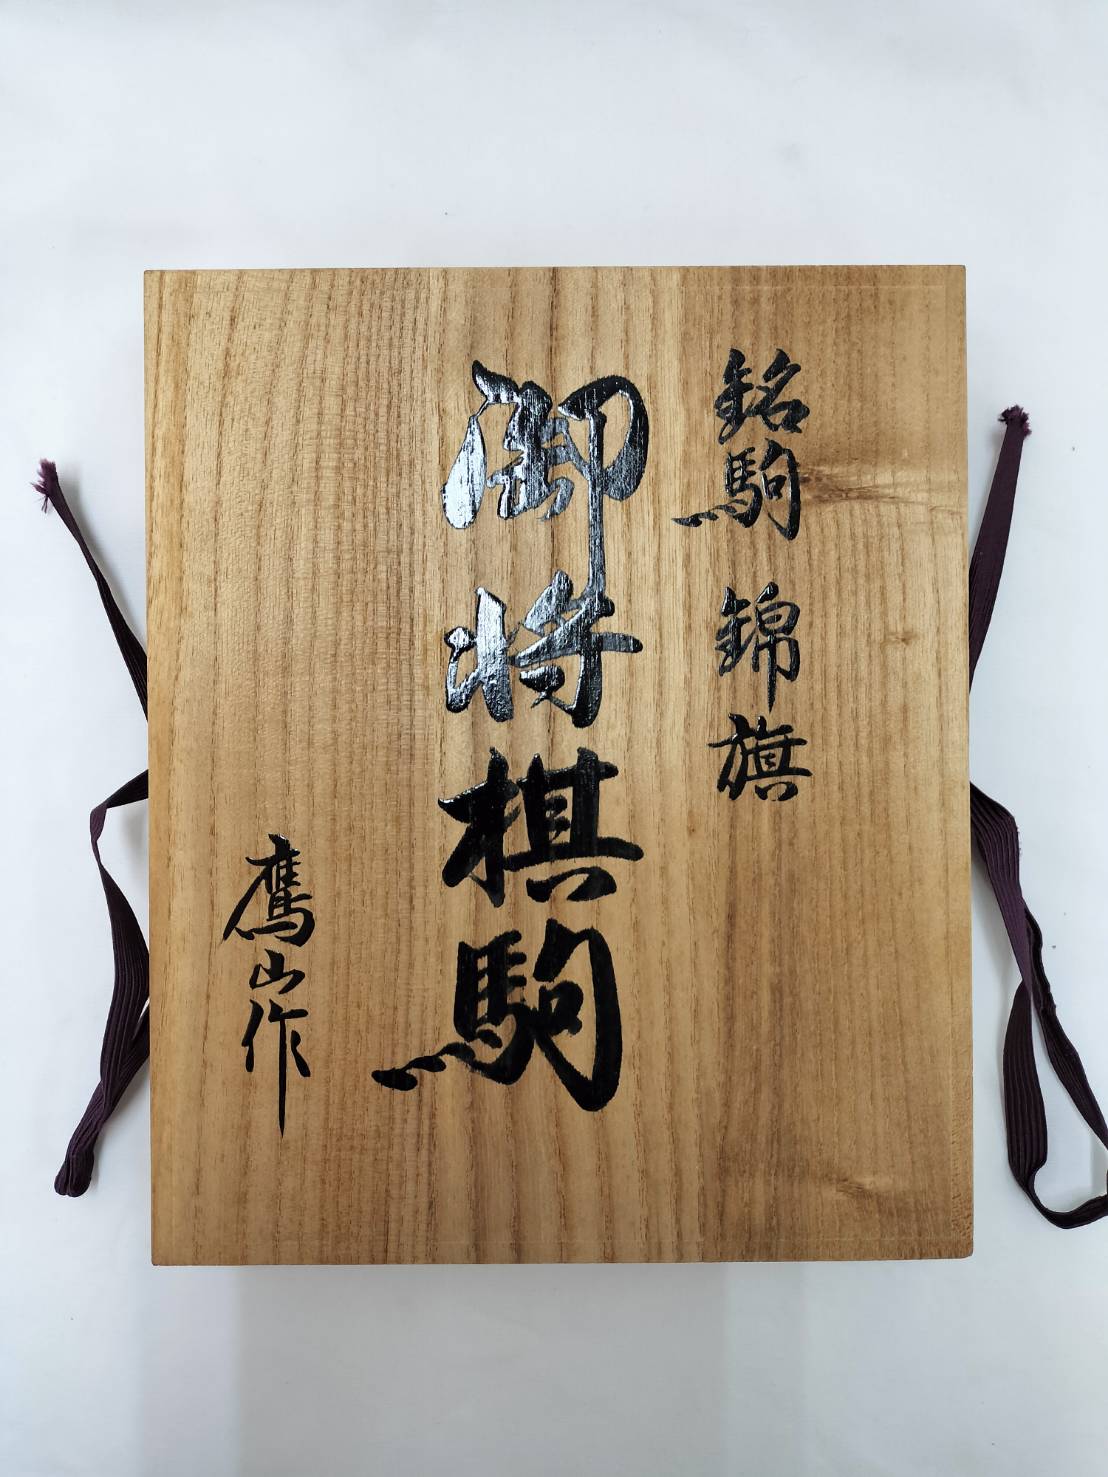 銘駒 錦旗
御将棋駒
鷹山作